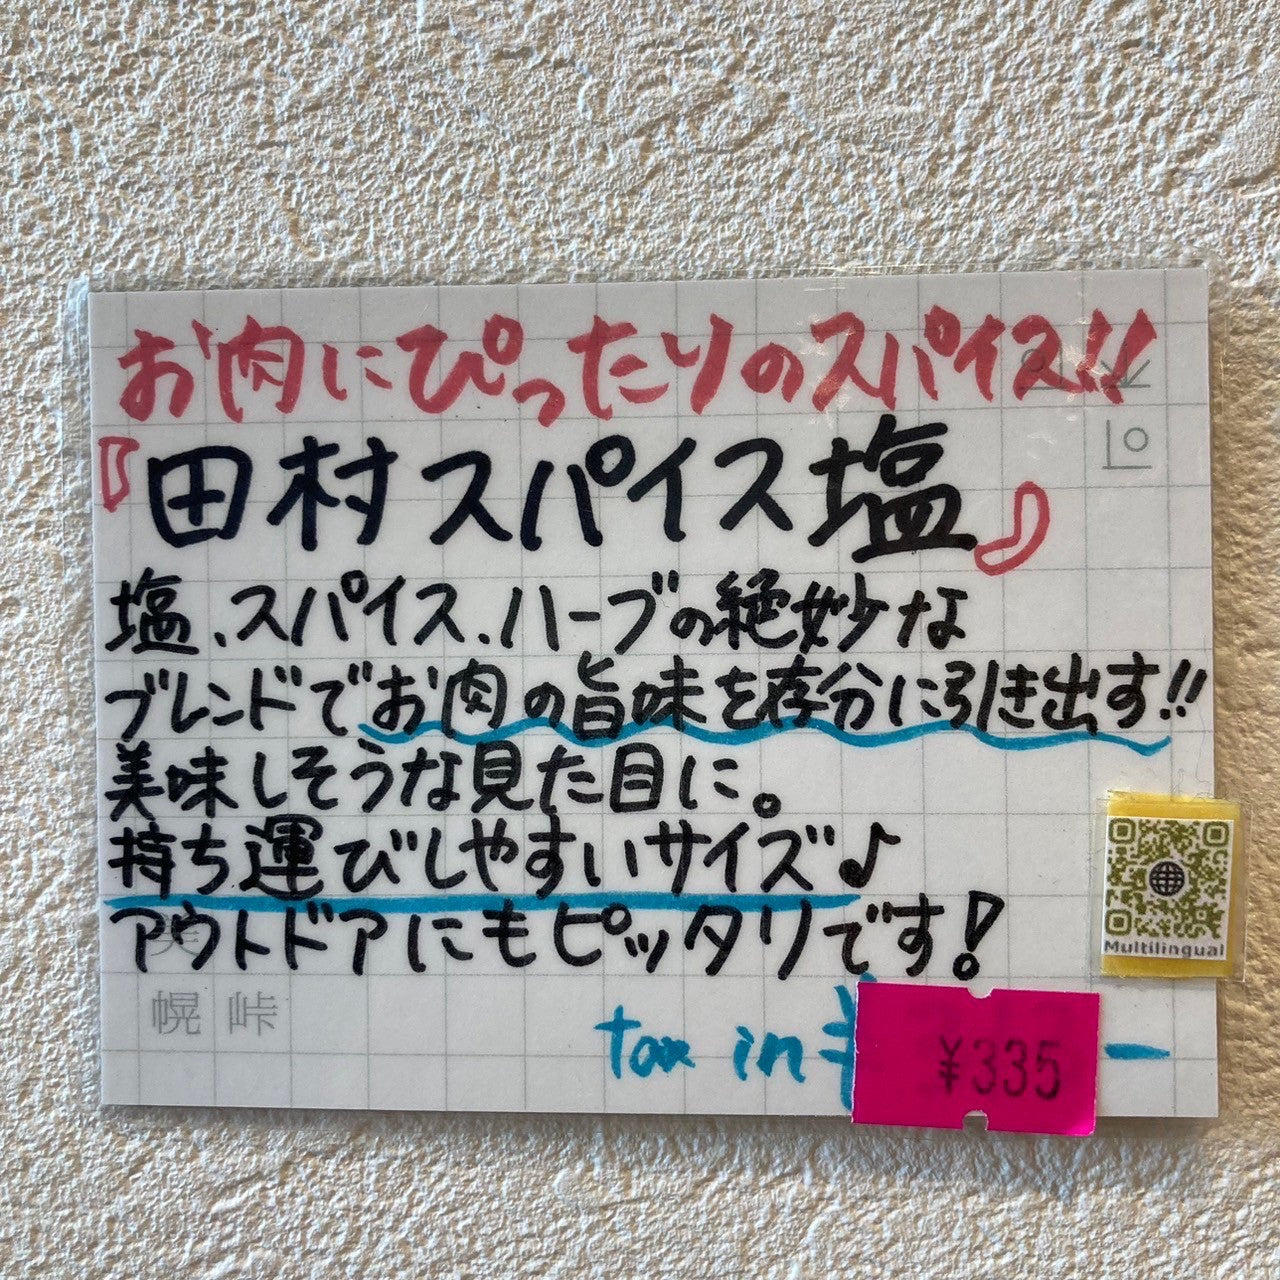 お肉にぴったりのスパイス!!
『田村スパイス塩』
塩、スパイス、ハーブの絶妙な
ブレンドでお肉の旨味を存分に引き出す!!
美味しそうな見た目に。
持ち運びしやすいサイズ♪
アウトドアにもピッタリです!
美
幌 峠
tax in ¥335ー
Multilingual